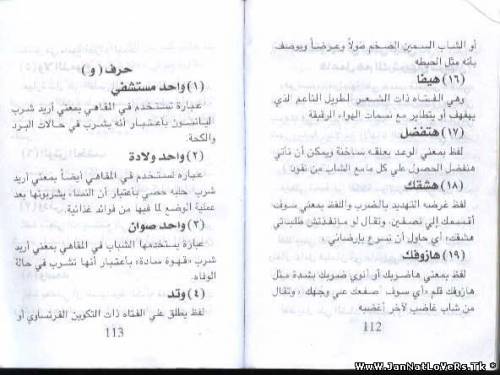 أو الشاب السمين الضخم طولاً وعرضاً ويوصف
بأنه مثل الحيطه
(١٦) هيفا
وهي الفتاه ذات الشعر الطويل الناعم الذي
يهفهف أو يتطاير مع نسمات الهواء الرقيقة
(١٧) هتفضل
لفظ بمعني الوعد بعلقه ساخنة ويمكن أن تأتي
هتفضل الحصول علي كل مامع الشاب من نقود
(١٨) هشقك
لفظ غرضه التهديد بالضرب واللفظ بمعني سوف
أقسمك إلي نصفين، وتقال لو مانفذتش طلباتي
هشقك» أي حاول أن تسرع بإرضائي.
(١٩) هازوفك
لفظ بمعني هاضربك أو أنوي ضربك بشدة مثل
هازوفك قلم «أي سوف أصفعك علي وجهك» وتقال
من شاب غاضب لآخر أغضبه
112
حرف (و)
(١) واحد مستشفي
عبارة تستخدم في المقاهي بمعني أريد شرب
اليانسون باعتبار أنه يشرب في حالات البرد
والكحة.
(٢) واحد ولادة
عباره تستخدم في المقاهي أيضاً بمعني أريد
شرب حلبه حصي باعتبار أن النساء يشربونها بعد
عملية الوضع لما فيها من فوائد غذائية.
(٣) واحد صوان
عبارة يستخدمها الشباب في المقاهي بمعني أريد
شرب «قهوة سادة» باعتبار أنها تشرب في حالة
الوفاه.
(٤) وتد
لفظ يطلق علي الفتاه ذات التكوين الفرنساوي أو
113
WwW.JanNatLoVeRs.Tk